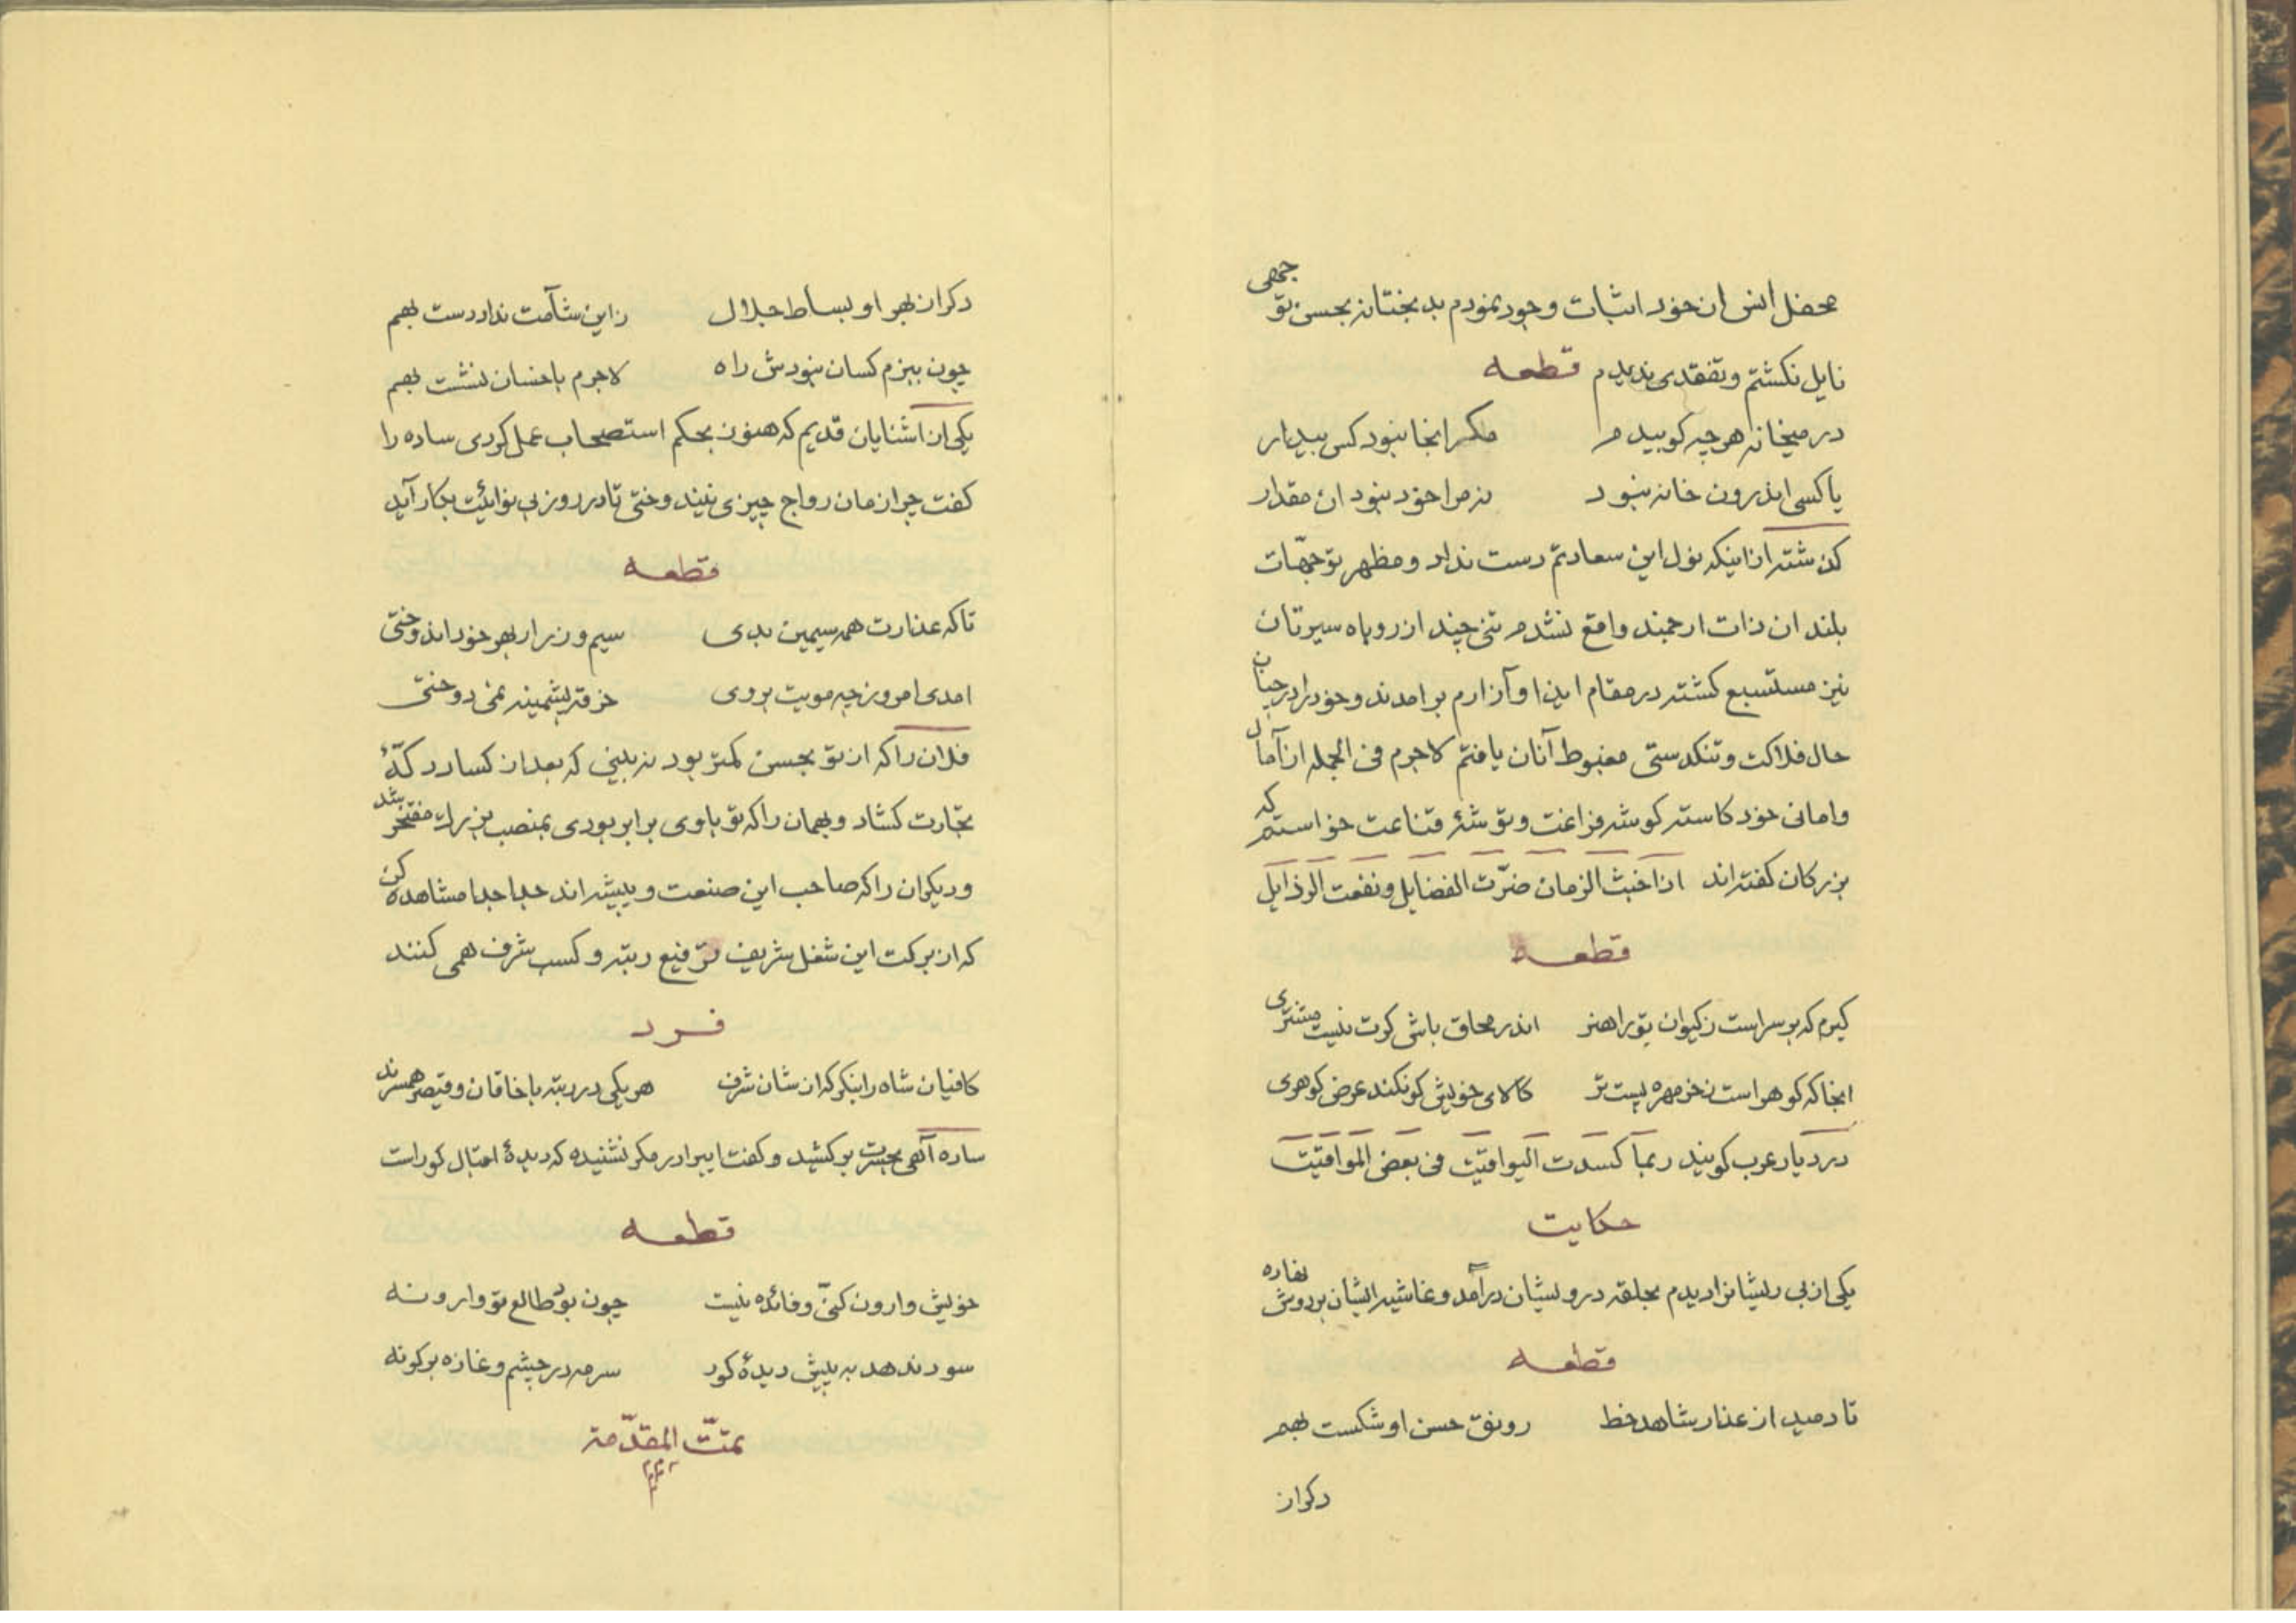 محفل انس ان خود اثبات وجود نمودم بدبختانه بحسن توجهی
نایل نکشتم و تفقدی ندیدم قطعه
در میخانه هر چه کوبیدم مکر انجا نبود کس بیدار
یا کسی اندرون خانه نبود نه مرا خود نبود ان مقدار
کذشته از اینکه نول این سعادتم دست نداد و مظهر توجهّات
بلند ان ذات ارجمند واقع نشدم تنی چند از روباه سیرتان
نیز مستسبع کشته در مقام ایذا و آزارم برامدند و خود را در چنان
حال فلاکت و تنکدستی مغبوط آنان یافتم لاجرم فی الجمله از آمال
و امانی خود کاسته کوشه فراغت و توشهٔ قناعت خواستم که
بزرکان کفته اند اذا خبث الزمان ضرّت الفضایل و نفعت الرذایل
قطعه
کیرم که بر سر است ز کیوان تو را هنر اندر محاق باشی کرت نیست مشتری
انجا که کوهر است ز خرمهره پست تر کالای خویش کو نکند عرض کوهری
در دیار عرب کویند ربما کسدت الیواقیت فی بعض المواقیت
حکایت
یکی از بی ریشانرا دیدم بحلقه درویشان درآمد و غاشیه ایشان بر دوش نهاده
قطعه
تا دمید از عذار شاهد خط رونق حسن او شکست بهم
دکر از
دکر از بهر او بساط جلال زاین شآمت نداد دست بهم
چون ببزم کسان نبودش راه لاجرم با خسان نشست بهم
یکی از آشنایان قدیم که هنوز بحکم استصحاب عمل کردی ساده را
کفت چرا زمان رواج چیزی نیندوختی تا در روز بی نوائیت بکار آید
قطعه
تا که عذارت همه سیمین بدی سیم و زر از بهر خود اندوختی
امدی امروز چه مویت بروی خرقه پشمینه نمی دوختی
فلان را که از تو بحسن کمتر بود نه بینی که بعد از کساد دکّهٔ
تجارت کشاد و بهمان را که تو باوی برابر بودی بمنصب بزرک مفتخر شد
و دیکران را که صاحب این صنعت و پیشه اند جدا جدا مشاهده کن
که از برکت این شغل شریف ترفیع رتبه و کسب شرف همی کنند
فرد
کافیان شاه را بنکر که از شان شرف هر یکی در رتبه با خاقان و قیصر همسرند
ساده آهی بحسرت بر کشید و کفت ایبرادر مکر نشنیده که دیدهٔ اقبال کور است
قطعه
خویش وارون کنیّ و فائده نیست چون بوَد طالع تو وارونه
سود ندهد به پیش دیدهٔ کور سرمه در چشم و غازه بر کونه
تمتّ المقدّمة